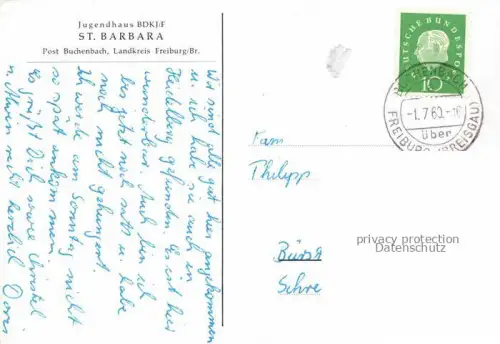 Jugendhaus BDKJ/F
ST. BARBARA
Post Buchenbach, Landkreis Freiburg/Br.
Wir sind alle gut hier angekommen
u. ich habe sie auch in
Heidelberg gefunden. Es ist hier
wunderbar. Auch bin ich
bis jetzt noch satt u. habe
noch nicht gehungert.
Ich werde am Sonntag nicht
so spät ankommen.
Es grüßt Dich sowie Christel
u. recht herzlich Doris
DEUTSCHE BUNDESPOST
10
BUCHENBACH
-1.7.60.-
über
FREIBURG (BREISGAU)
Fam
Philipp
privacy protection
Datenschutz